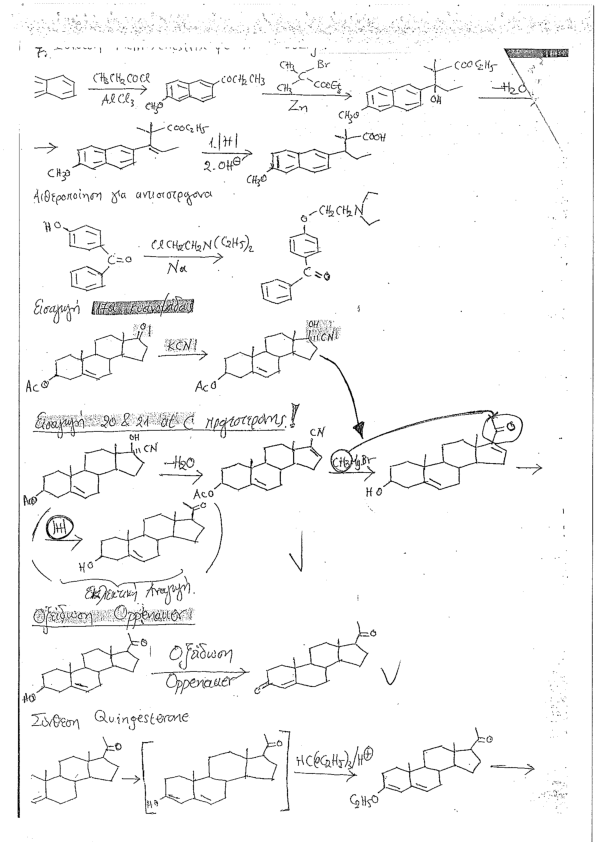 7.
CH₃CH₂COCl
AlCl₃
COCH₂CH₃
CH₃O
CH₃ Br
CH₃ COOEt
Zn
COOC₂H₅
OH
CH₃O
-H₂O
COOC₂H₅
CH₃O
1. |H|
2. OH⊖
COOH
CH₃O
Αιθεροποίηση για αντιοιστρογόνα
HO
C=O
ClCH₂CH₂N(C₂H₅)₂
Na
O-CH₂CH₂N
C=O
Εισαγωγή
O
AcO
KCN
OH
CN
AcO
Εισαγωγή 20 & 21 C !
OH
CN
AcO
-H₂O
CN
AcO
CH₃MgBr
O
HO
|H|
O
HO
Εκλεκτική Αναγωγή.
Οξείδωση Oppenauer
O
Οξείδωση
Oppenauer
O
O
Σύνθεση Quingesterone
O
O
HO
HC(OC₂H₅)₃/H⊕
O
C₂H₅O